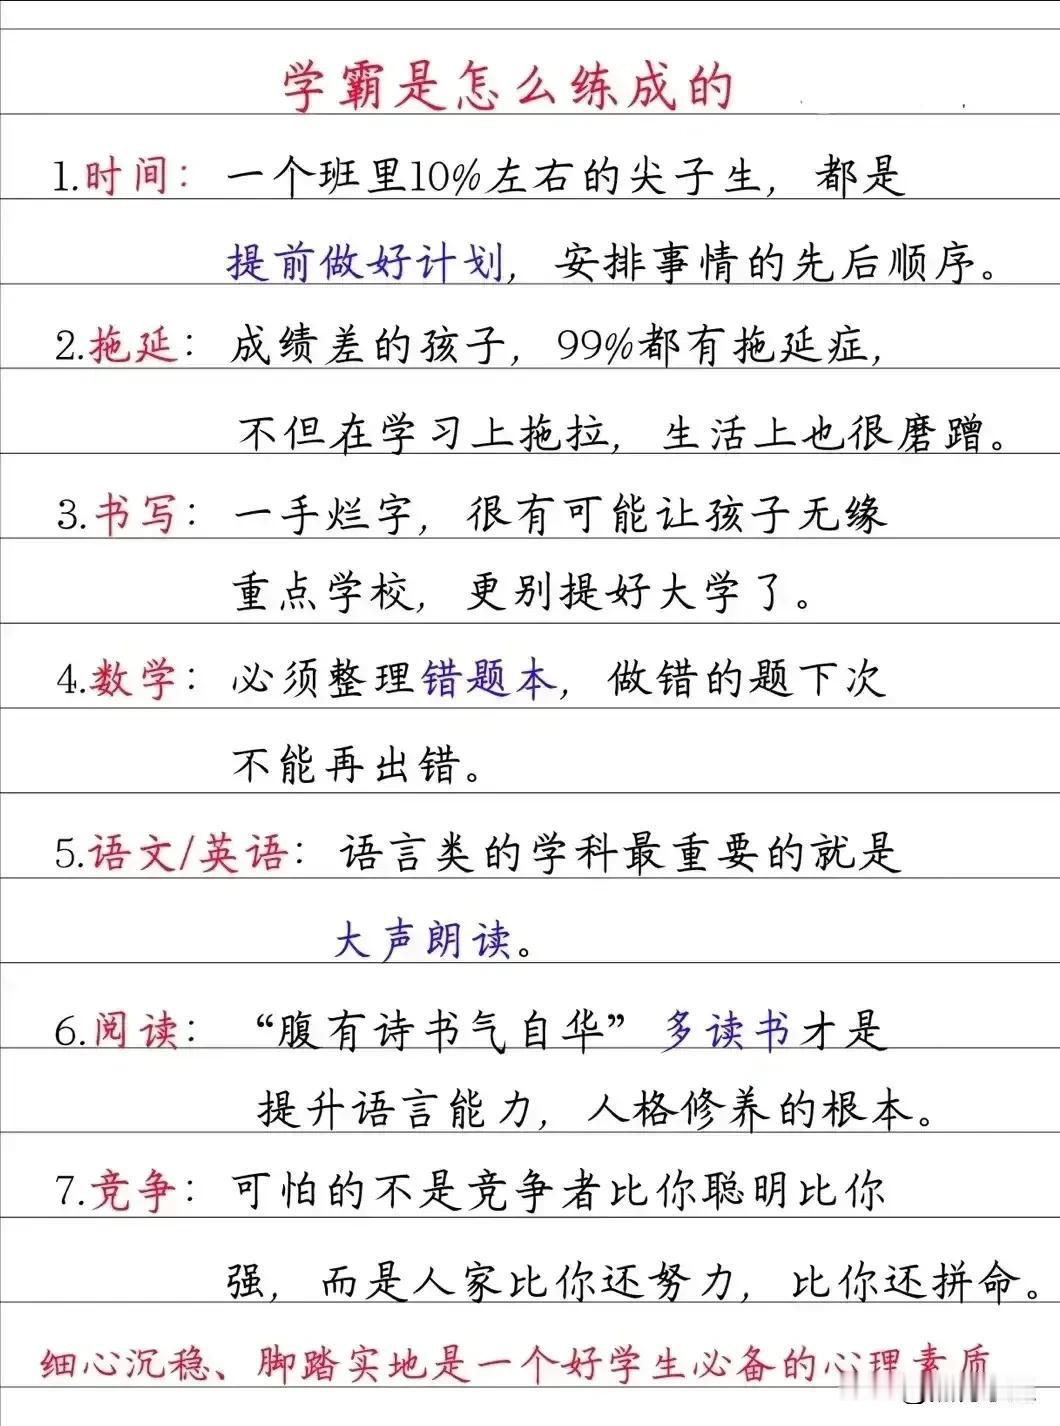 学霸是怎么练成的
1.时间：一个班里10%左右的尖子生，都是
提前做好计划，安排事情的先后顺序。
2.拖延：成绩差的孩子，99%都有拖延症，
不但在学习上拖拉，生活上也很磨蹭。
3.书写：一手烂字，很有可能让孩子无缘
重点学校，更别提好大学了。
4.数学：必须整理错题本，做错的题下次
不能再出错。
5.语文/英语：语言类的学科最重要的就是
大声朗读。
6.阅读：“腹有诗书气自华”多读书才是
提升语言能力，人格修养的根本。
7.竞争：可怕的不是竞争者比你聪明比你
强，而是人家比你还努力，比你还拼命。
细心沉稳、脚踏实地是一个好学生必备的心理素质